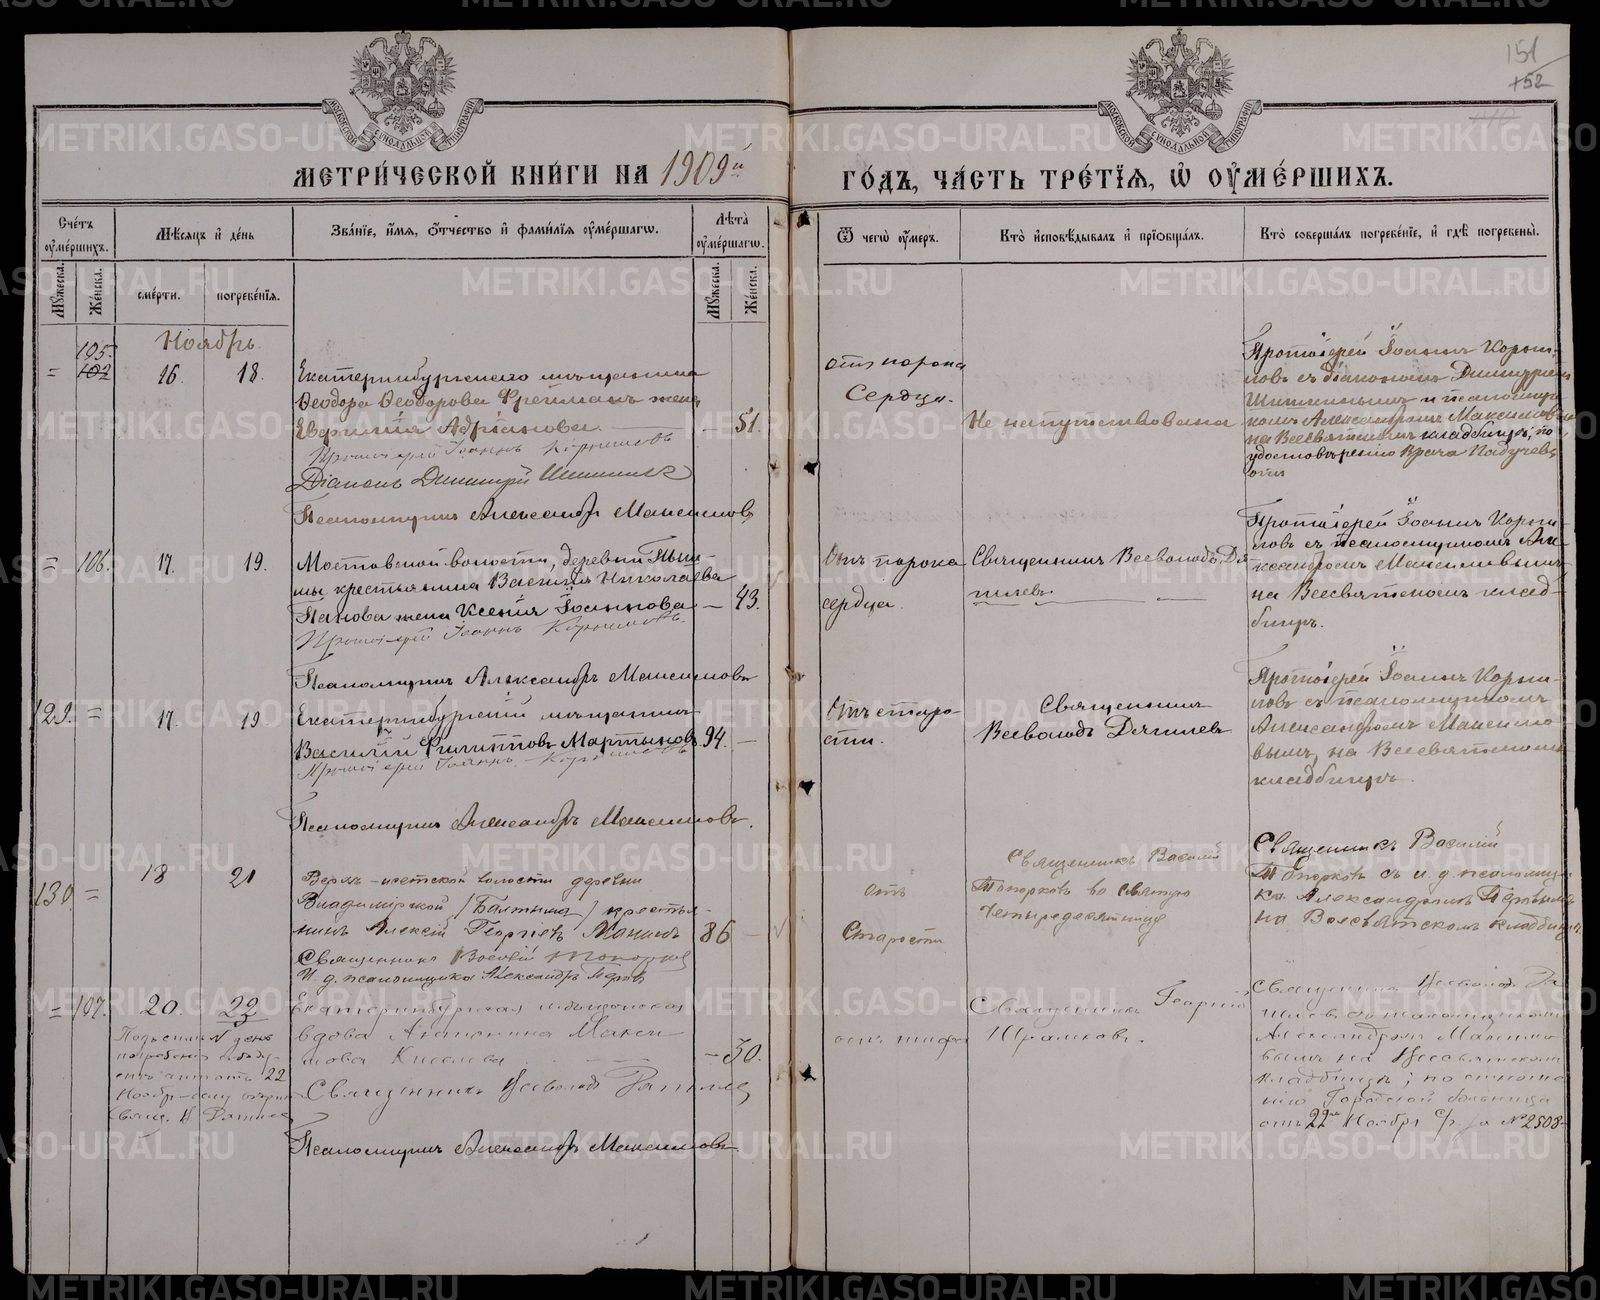 151
152
МЕТРИ́ЧЕСКОЙ КНИ́ГИ НА 1909й
ГО́ДЪ, ЧА́СТЬ ТРЕ́ТЇЯ, Ѡ ОУМЕ́РШИХЪ.
Сче́тъ оумершихъ.
Мѣсяцъ и де́нь
Зва́нїе, и́мя, о́тчество и фами́лїя оуме́ршагѡ.
Лѣта̀ оуме́ршагѡ.
Ѿ чегѡ̀ оу́меръ.
Кто̀ исповѣ́дывалъ и прїѡбща́лъ.
Кто̀ соверша́лъ погребе́нїе, и гдѣ̀ погребены̀.
Мꙋ́жеска.
Же́нска.
сме́рти.
погребе́нїя.
Мꙋ́жеска.
Же́нска.
Ноябрь.
= 105. 102
16. 18.
Екатеринбургскаго мѣщанина
Ѳеодора Ѳеодорова Фрейманъ жена
Евфимія Адріанова. — 51.
Протоіерей Іоаннъ Корниловъ
Діаконъ Димитрій Шишкинъ
Псаломщикъ Александръ Максимовъ
отъ порока
Сердца.
Не напутствована
Протоіерей Іоаннъ Корни-
ловъ съ діакономъ Димитріемъ
Шишкинымъ и псаломщи-
комъ Александромъ Максимовымъ
на Всесвятскомъ кладбищѣ, по
удостовѣренію врача
= 106. 17. 19.
Мостовской волости, деревни
крестьянина Василія Николаева
Панова жена Ксенія Іоаннова — 43.
Протоіерей Іоаннъ Корниловъ.
Псаломщикъ Александръ Максимовъ
Отъ порока
сердца.
Священникъ Всеволодъ
Протоіерей Іоаннъ Корни-
ловъ съ псаломщикомъ Але-
ксандромъ Максимовымъ
на Всесвятскомъ клад-
бищѣ.
129. = 17. 19.
Екатеринбургскій мѣщанинъ
Василій Филипповъ Мартыновъ 94. —
Протоіерей Іоаннъ Корниловъ
Псаломщикъ Александръ Максимовъ.
Отъ старо-
сти.
Священникъ
Всеволодъ
Протоіерей Іоаннъ Корни-
ловъ съ псаломщикомъ
Александромъ Максимо-
вымъ, на Всесвятскомъ
кладбищѣ.
130 = 18 21
Верхъ-исетской волости деревни
Владимірской (Балтыма) крестья-
нинъ Алексій Георгіевъ 86 —
Священникъ Василій Топорковъ
И. д. псаломщика Александръ
отъ
Старости
Священникъ Василій
Топорковъ во святую
Четыредесятницу
Священникъ Василій
Топорковъ съ и. д. псаломщи-
ка Александромъ
на Всесвятскомъ кладбищѣ
= 107. 20. 22
Екатеринбургская
вдова Антонина Макси-
мова Киселева — 30.
Священникъ Всеволодъ
Псаломщикъ Александръ Максимовъ
день
погребенія
22
Ноябр
Свящ. В.
отъ тифа
Священникъ Георгій
Священникъ Всеволодъ
съ псаломщикомъ
Александромъ Максимо-
вымъ на Всесвятскомъ
кладбищѣ; по отноше-
нію Городской больницы
отъ 22 Ноября с/г. за № 2508
METRIKI.GASO-URAL.RU